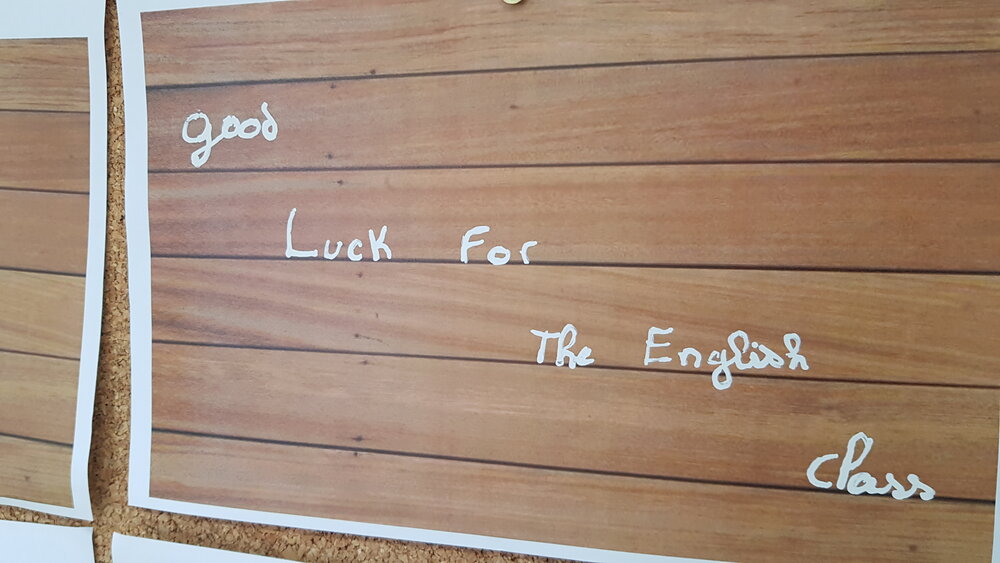 good
Luck For
The English
class